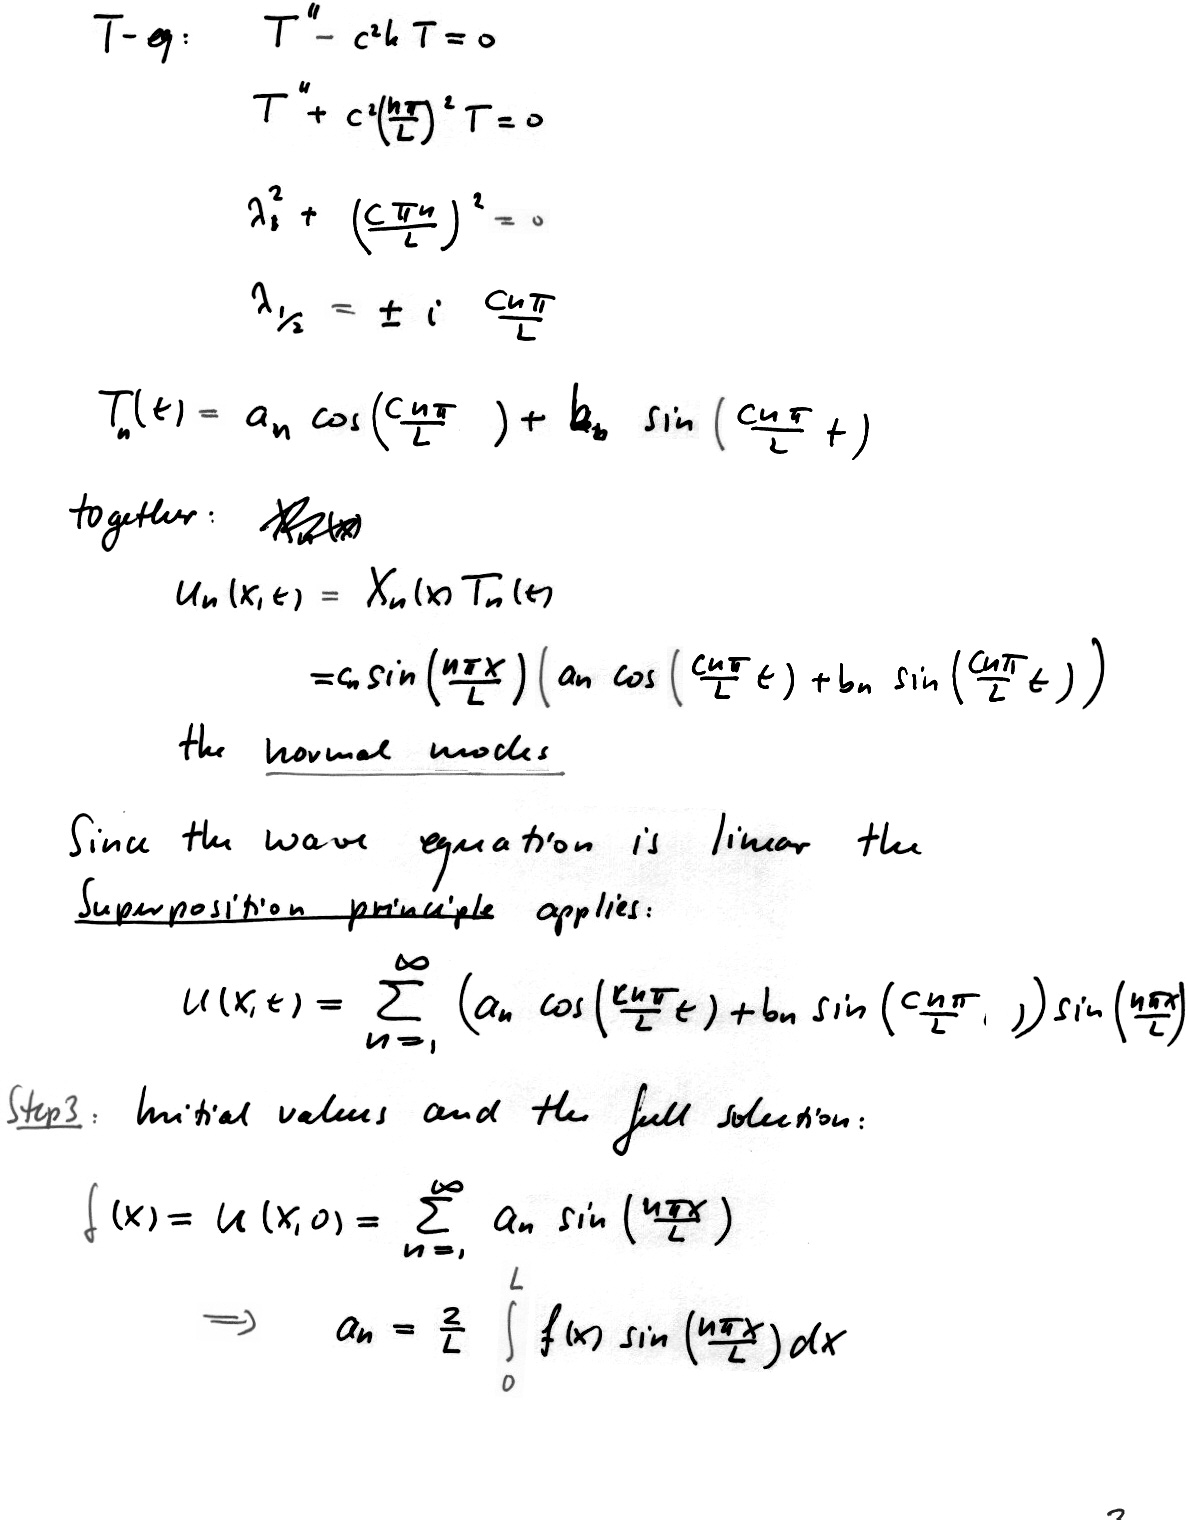 T-eq: T'' - c²k T = 0
T'' + c²(nπ/L)² T = 0
λ² + (cπn/L)² = 0
λ₁/₂ = ± i cnπ/L
Tₙ(t) = aₙ cos(cnπ/L ) + bₙ sin(cnπ/L t)
together:
uₙ(x,t) = Xₙ(x) Tₙ(t)
= cₙ sin(nπx/L)(aₙ cos(cnπ/L t) + bₙ sin(cnπ/L t))
the normal modes
Since the wave equation is linear the
Superposition principle applies:
u(x,t) = ∑_{n=1}^{∞} (aₙ cos(cnπ/L t) + bₙ sin(cnπ/L )) sin(nπx/L)
Step3: Initial values and the full solution:
f(x) = u(x,0) = ∑_{n=1}^{∞} aₙ sin(nπx/L)
⇒ aₙ = 2/L ∫₀ᴸ f(x) sin(nπx/L) dx